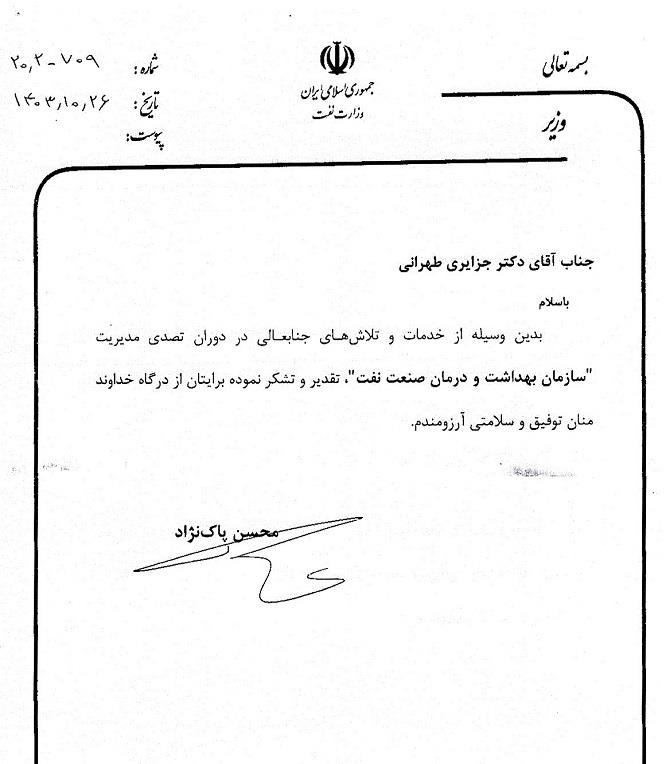 بسمه تعالی
جمهوری اسلامی ایران
وزارت نفت
وزیر
شماره : ۲۰٫۲-۷۰۹
تاریخ : ۱۴۰۳٫۱۰٫۲۶
پیوست:
جناب آقای دکتر جزایری طهرانی
باسلام
بدین وسیله از خدمات و تلاش‌های جنابعالی در دوران تصدی مدیریت
"سازمان بهداشت و درمان صنعت نفت"، تقدیر و تشکر نموده برایتان از درگاه خداوند
منان توفیق و سلامتی آرزومندم.
محسن پاک‌نژاد